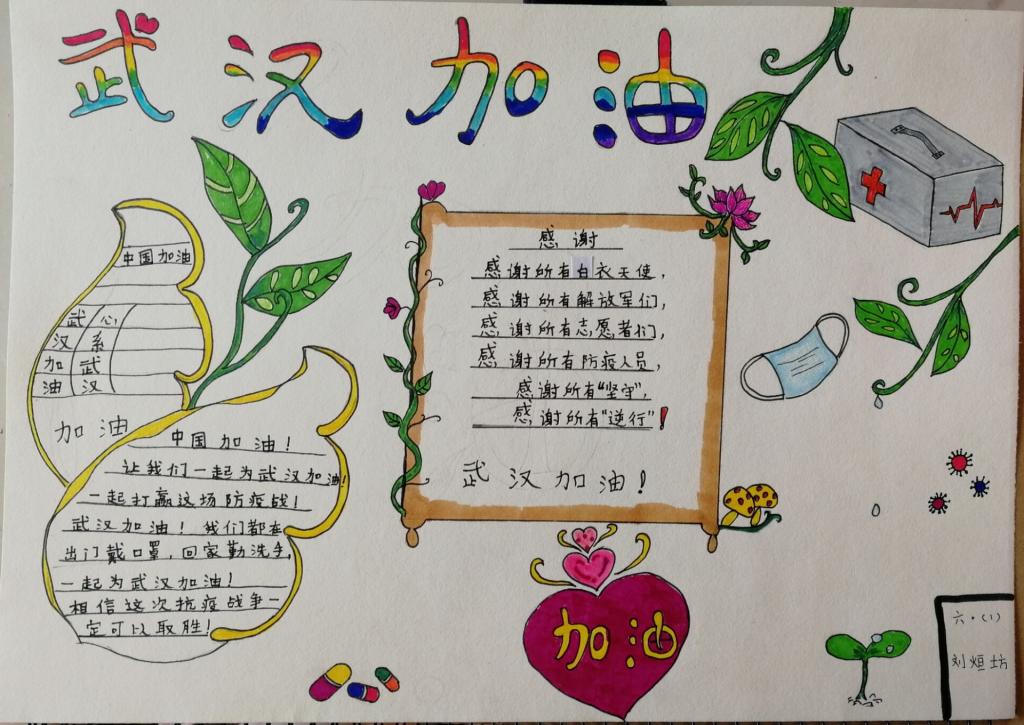 武汉加油
中国加油
武 心
汉 系
加 武
油 汉
加油
中国加油！
让我们一起为武汉加油！
一起打赢这场防疫战！
武汉加油！我们都在
出门戴口罩，回家勤洗手，
一起为武汉加油！
相信这次抗疫战争一
定可以取胜！
感谢
感谢所有白衣天使，
感谢所有解放军们，
感谢所有志愿者们，
感谢所有防疫人员，
感谢所有“坚守”，
感谢所有“逆行”！
武汉加油！
加油
六·（1）
刘烜坊